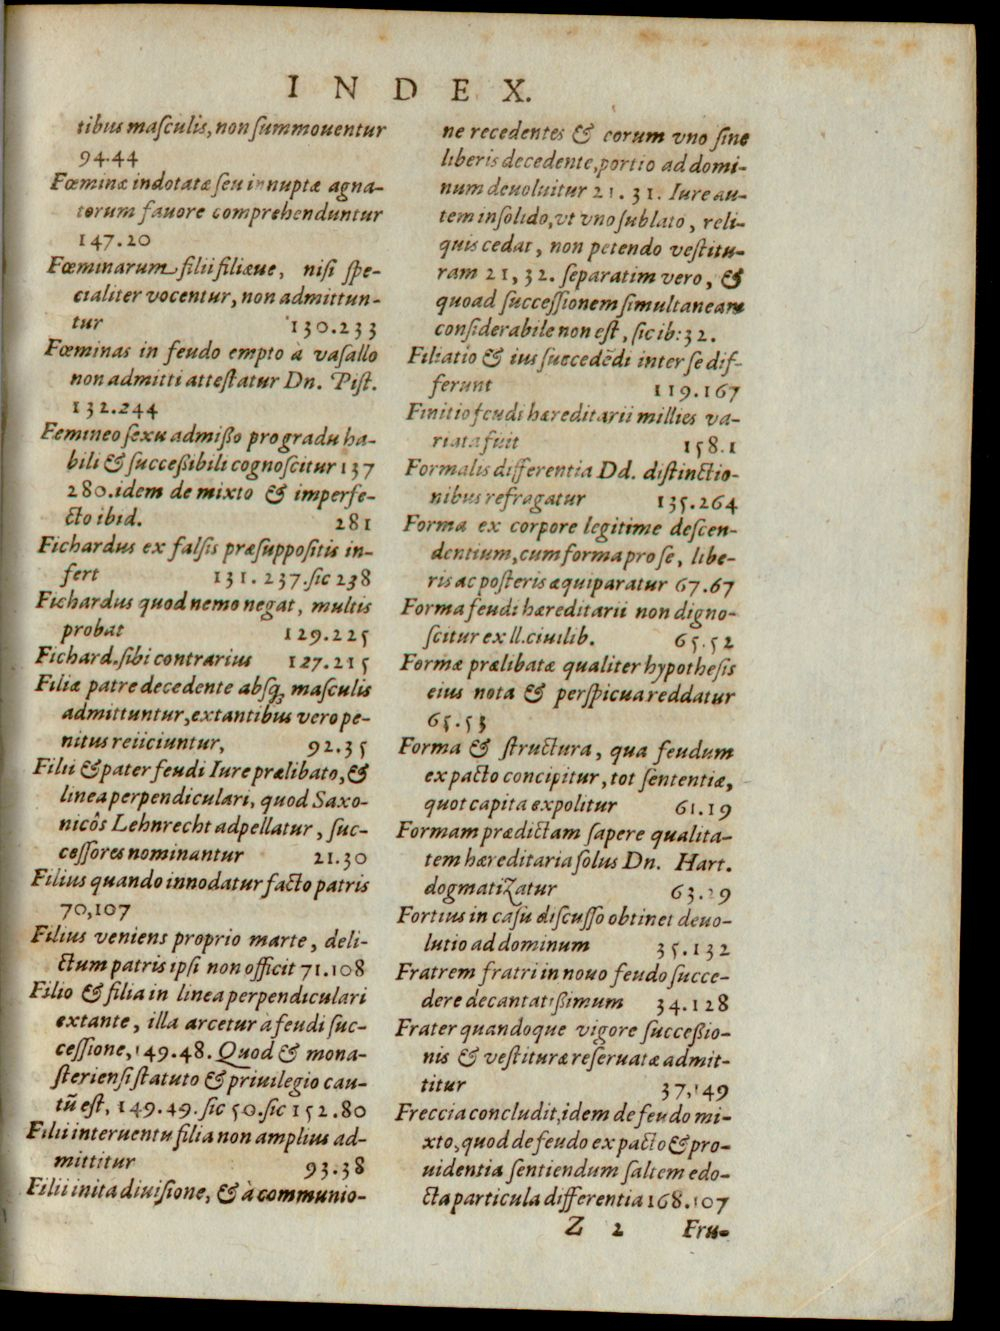 INDEX.
tibus masculis, non summouentur
94.44
Fœminæ indotatæ seu innuptæ agna-
torum favore comprehenduntur
147.20
Fœminarum filii filiæue, nisi spe-
cialiter vocentur, non admittun-
tur 130.233
Fœminas in feudo empto à vasallo
non admitti attestatur Dn. Pist.
132.244
Femineo sexu admißo pro gradu ha-
bili & succeßibili cognoscitur 137
280. idem de mixto & imperfe-
cto ibid. 281
Fichardus ex falsis præsuppositis in-
fert 131.237. sic 238
Fichardus quod nemo negat, multis
probat 129.225
Fichard. sibi contrarius 127.215
Filiæ patre decedente absq; masculis
admittuntur, extantibus vero pe-
nitus reiiciuntur, 92.35
Filii & pater feudi Iure prælibato, &
linea perpendiculari, quod Saxo-
nicôs Lehnrecht adpellatur, suc-
cessores nominantur 21.30
Filius quando innodatur facto patris
70,107
Filius veniens proprio marte, deli-
ctum patris ipsi non officit 71.108
Filio & filia in linea perpendiculari
extante, illa arcetur à feudi suc-
cessione, 149.48. Quod & mona-
steriensi statuto & priuilegio cau-
tū est, 149.49. sic 50. sic 152.80
Filii interuentu filia non amplius ad-
mittitur 93.38
Filii inita diuisione, & à communio-
ne recedentes & eorum vno sine
liberis decedente, portio ad domi-
num deuoluitur 21.31. Iure au-
tem in solido, vt vno sublato, reli-
quis cedat, non petendo vestitu-
ram 21,32. separatim vero, &
quoad successionem simultaneam
considerabile non est, sic ib: 32.
Filiatio & ius succedēdi inter se dif-
ferunt 119.167
Finitio feudi hæreditarii millies va-
riata fuit 158.1
Formalis differentia Dd. distinctio-
nibus refragatur 135.264
Forma ex corpore legitime descen-
dentium, cum forma pro se, libe-
ris ac posteris æquiparatur 67.67
Forma feudi hæreditarii non digno-
scitur ex ll. ciuilib. 65.52
Formæ prælibatæ qualiter hypothesis
eius nota & perspicua reddatur
65.53
Forma & structura, qua feudum
ex pacto concipitur, tot sententiæ,
quot capita expolitur 61.19
Formam prædictam sapere qualita-
tem hæreditaria solus Dn. Hart.
dogmatizatur 63.29
Fortius in casu discusso obtinet deuo-
lutio ad dominum 35.132
Fratrem fratri in nouo feudo succe-
dere decantatißimum 34.128
Frater quandoque vigore succeßio-
nis & vestituræ reseruatæ admit-
titur 37,149
Freccia concludit, idem de feudo mi-
xto, quod de feudo ex pacto & pro-
uidentia sentiendum saltem edo-
cta particula differentia 168.107
Z 2 Fru-